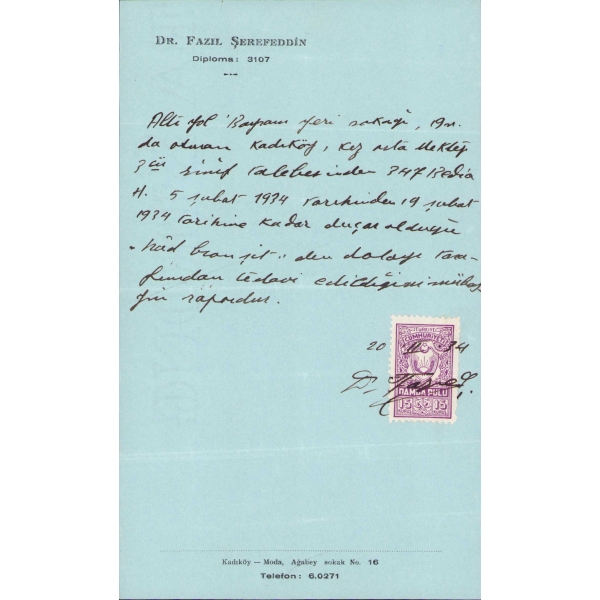 DR. FAZIL ŞEREFEDDİN
Diploma: 3107
Altı yol Bayram yeri sokağı, 19 n.
da oturan Kadıköy, Kız orta Mektep
3üü sınıf talebesinden 347 Bedia
H. 5 şubat 1934 tarihinden 19 şubat
1934 tarihine kadar duçar olduğu
„had bronşit„ den dolayı tara-
fımdan tedavi edildiğini mübey-
yin rapordur.
20 II 34
Dr.
TÜRKİYE
CUMHURİYETİ
DAMGA PULU
15 15
Kadıköy — Moda, Ağabey sokak No. 16
Telefon: 6.0271